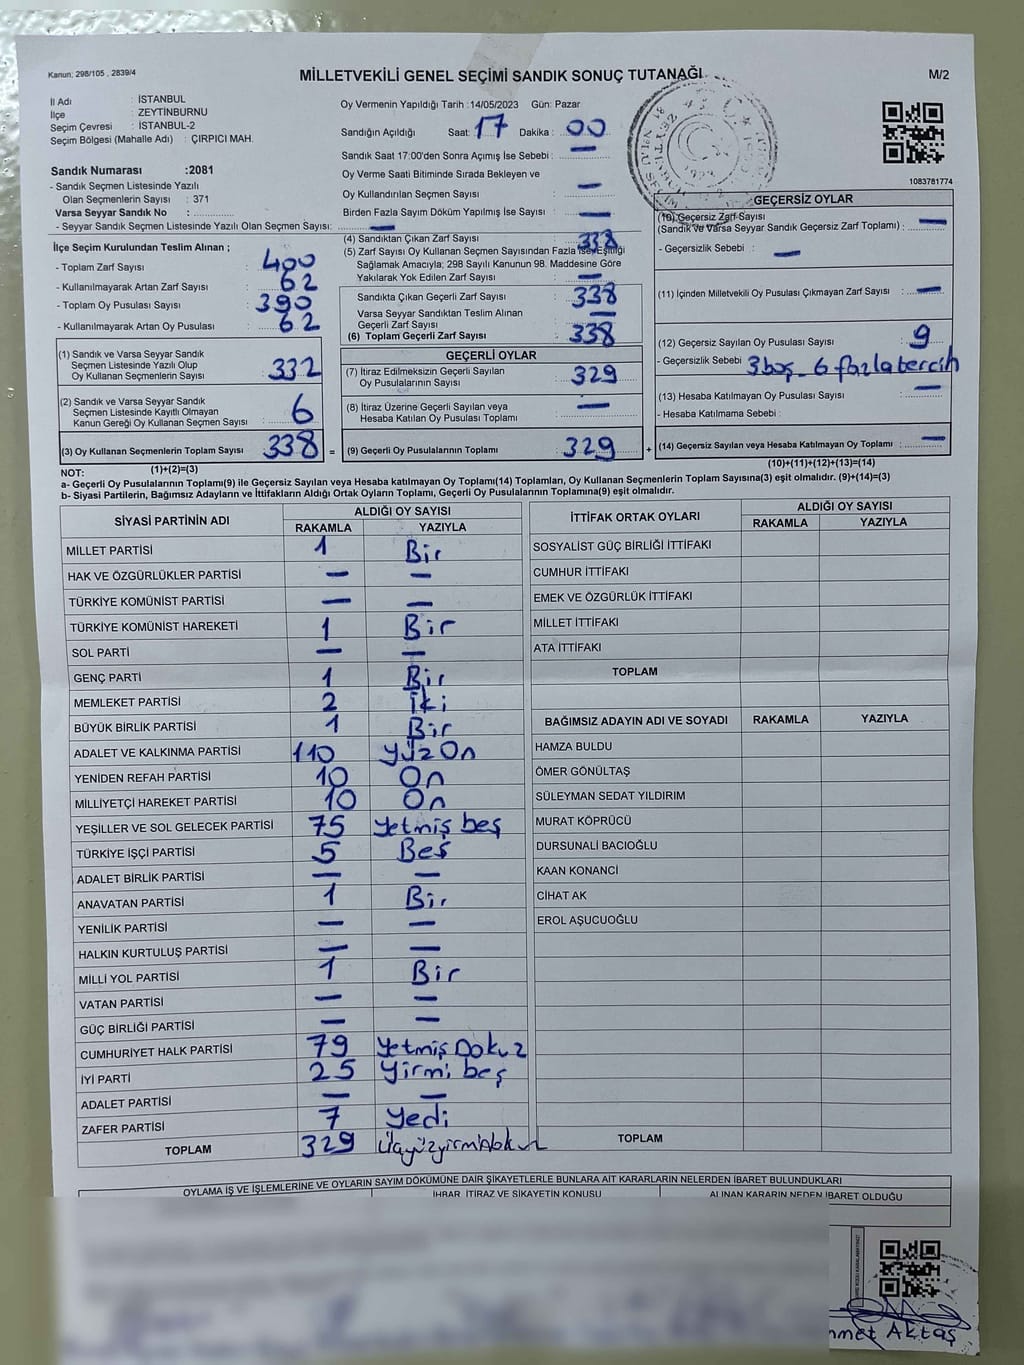 Kanun; 298/105 , 2839/4
MİLLETVEKİLİ GENEL SEÇİMİ SANDIK SONUÇ TUTANAĞI
M/2
İl Adı : İSTANBUL
İlçe : ZEYTİNBURNU
Seçim Çevresi : İSTANBUL-2
Seçim Bölgesi (Mahalle Adı) : ÇIRPICI MAH.
Sandık Numarası :2081
- Sandık Seçmen Listesinde Yazılı
Olan Seçmenlerin Sayısı : 371
Varsa Seyyar Sandık No :
- Seyyar Sandık Seçmen Listesinde Yazılı Olan Seçmen Sayısı: —
Oy Vermenin Yapıldığı Tarih :14/05/2023 Gün: Pazar
Sandığın Açıldığı Saat: 17 Dakika : 00
Sandık Saat 17:00'den Sonra Açımış İse Sebebi : —
Oy Verme Saati Bitiminde Sırada Bekleyen ve
Oy Kullandırılan Seçmen Sayısı —
Birden Fazla Sayım Döküm Yapılmış İse Sayısı : —
1083781774
İlçe Seçim Kurulundan Teslim Alınan ;
- Toplam Zarf Sayısı : 400
- Kullanılmayarak Artan Zarf Sayısı : 62
- Toplam Oy Pusulası Sayısı : 390
- Kullanılmayarak Artan Oy Pusulası : 62
(1) Sandık ve Varsa Seyyar Sandık
Seçmen Listesinde Yazılı Olup
Oy Kullanan Seçmenlerin Sayısı : 332
(2) Sandık ve Varsa Seyyar Sandık
Seçmen Listesinde Kayıtlı Olmayan
Kanun Gereği Oy Kullanan Seçmen Sayısı : 6
(3) Oy Kullanan Seçmenlerin Toplam Sayısı 338
(1)+(2)=(3)
(4) Sandıktan Çıkan Zarf Sayısı : 338
(5) Zarf Sayısı Oy Kullanan Seçmen Sayısından Fazla ise, Eşitliği
Sağlamak Amacıyla; 298 Sayılı Kanunun 98. Maddesine Göre
Yakılarak Yok Edilen Zarf Sayısı : —
Sandıkta Çıkan Geçerli Zarf Sayısı : 338
Varsa Seyyar Sandıktan Teslim Alınan
Geçerli Zarf Sayısı : —
(6) Toplam Geçerli Zarf Sayısı : 338
GEÇERLİ OYLAR
(7) İtiraz Edilmeksizin Geçerli Sayılan
Oy Pusulalarının Sayısı : 329
(8) İtiraz Üzerine Geçerli Sayılan veya
Hesaba Katılan Oy Pusulası Toplamı : —
= (9) Geçerli Oy Pusulalarının Toplamı : 329 +
GEÇERSİZ OYLAR
(10) Geçersiz Zarf Sayısı
(Sandık ve Varsa Seyyar Sandık Geçersiz Zarf Toplamı) : —
- Geçersizlik Sebebi : —
(11) İçinden Milletvekili Oy Pusulası Çıkmayan Zarf Sayısı : —
(12) Geçersiz Sayılan Oy Pusulası Sayısı : 9
- Geçersizlik Sebebi : 3 boş - 6 fazla tercih
(13) Hesaba Katılmayan Oy Pusulası Sayısı : —
- Hesaba Katılmama Sebebi :
(14) Geçersiz Sayılan veya Hesaba Katılmayan Oy Toplamı : —
(10)+(11)+(12)+(13)=(14)
NOT:
a- Geçerli Oy Pusulalarının Toplamı(9) ile Geçersiz Sayılan veya Hesaba katılmayan Oy Toplamı(14) Toplamları, Oy Kullanan Seçmenlerin Toplam Sayısına(3) eşit olmalıdır. (9)+(14)=(3)
b- Siyasi Partilerin, Bağımsız Adayların ve İttifakların Aldığı Ortak Oyların Toplamı, Geçerli Oy Pusulalarının Toplamına(9) eşit olmalıdır.
SİYASİ PARTİNİN ADI
ALDIĞI OY SAYISI
RAKAMLA YAZIYLA
MİLLET PARTİSİ 1 Bir
HAK VE ÖZGÜRLÜKLER PARTİSİ — —
TÜRKİYE KOMÜNİST PARTİSİ — —
TÜRKİYE KOMÜNİST HAREKETİ 1 Bir
SOL PARTİ — —
GENÇ PARTİ 1 Bir
MEMLEKET PARTİSİ 2 iki
BÜYÜK BİRLİK PARTİSİ 1 Bir
ADALET VE KALKINMA PARTİSİ 110 Yüz On
YENİDEN REFAH PARTİSİ 10 On
MİLLİYETÇİ HAREKET PARTİSİ 10 On
YEŞİLLER VE SOL GELECEK PARTİSİ 75 Yetmiş beş
TÜRKİYE İŞÇİ PARTİSİ 5 Beş
ADALET BİRLİK PARTİSİ — —
ANAVATAN PARTİSİ 1 Bir
YENİLİK PARTİSİ — —
HALKIN KURTULUŞ PARTİSİ — —
MİLLİ YOL PARTİSİ 1 Bir
VATAN PARTİSİ — —
GÜÇ BİRLİĞİ PARTİSİ — —
CUMHURİYET HALK PARTİSİ 79 Yetmiş Dokuz
İYİ PARTİ 25 Yirmi beş
ADALET PARTİSİ — —
ZAFER PARTİSİ 7 Yedi
TOPLAM 329 Üçyüzyirmidokuz
İTTİFAK ORTAK OYLARI
ALDIĞI OY SAYISI
RAKAMLA YAZIYLA
SOSYALİST GÜÇ BİRLİĞİ İTTİFAKI
CUMHUR İTTİFAKI
EMEK VE ÖZGÜRLÜK İTTİFAKI
MİLLET İTTİFAKI
ATA İTTİFAKI
TOPLAM
BAĞIMSIZ ADAYIN ADI VE SOYADI RAKAMLA YAZIYLA
HAMZA BULDU
ÖMER GÖNÜLTAŞ
SÜLEYMAN SEDAT YILDIRIM
MURAT KÖPRÜCÜ
DURSUNALİ BACIOĞLU
KAAN KONANCİ
CİHAT AK
EROL AŞUCUOĞLU
TOPLAM
OYLAMA İŞ VE İŞLEMLERİNE VE OYLARIN SAYIM DÖKÜMÜNE DAİR ŞİKAYETLERLE BUNLARA AİT KARARLARIN NELERDEN İBARET BULUNDUKLARI
İHBAR, İTİRAZ VE ŞİKAYETİN KONUSU
ALINAN KARARIN NEDEN İBARET OLDUĞU
Aktaş